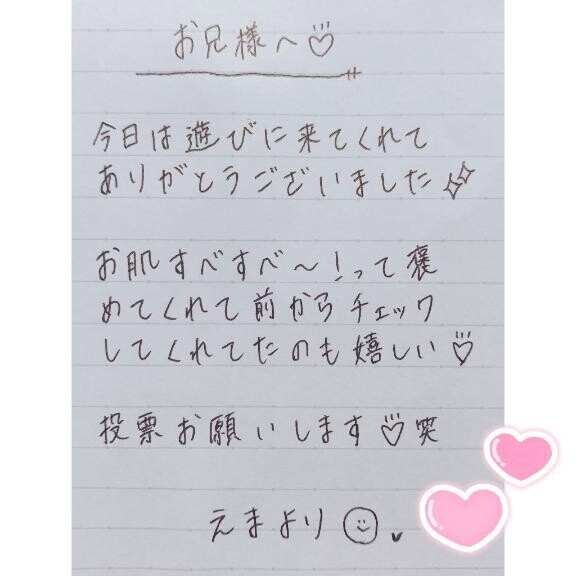 お兄様へ♡
今日は遊びに来てくれて
ありがとうございました✨
お肌すべすべ〜!って褒
めてくれて前からチェック
してくれてたのも嬉しい♡
投票お願いします♡笑
えまより☺